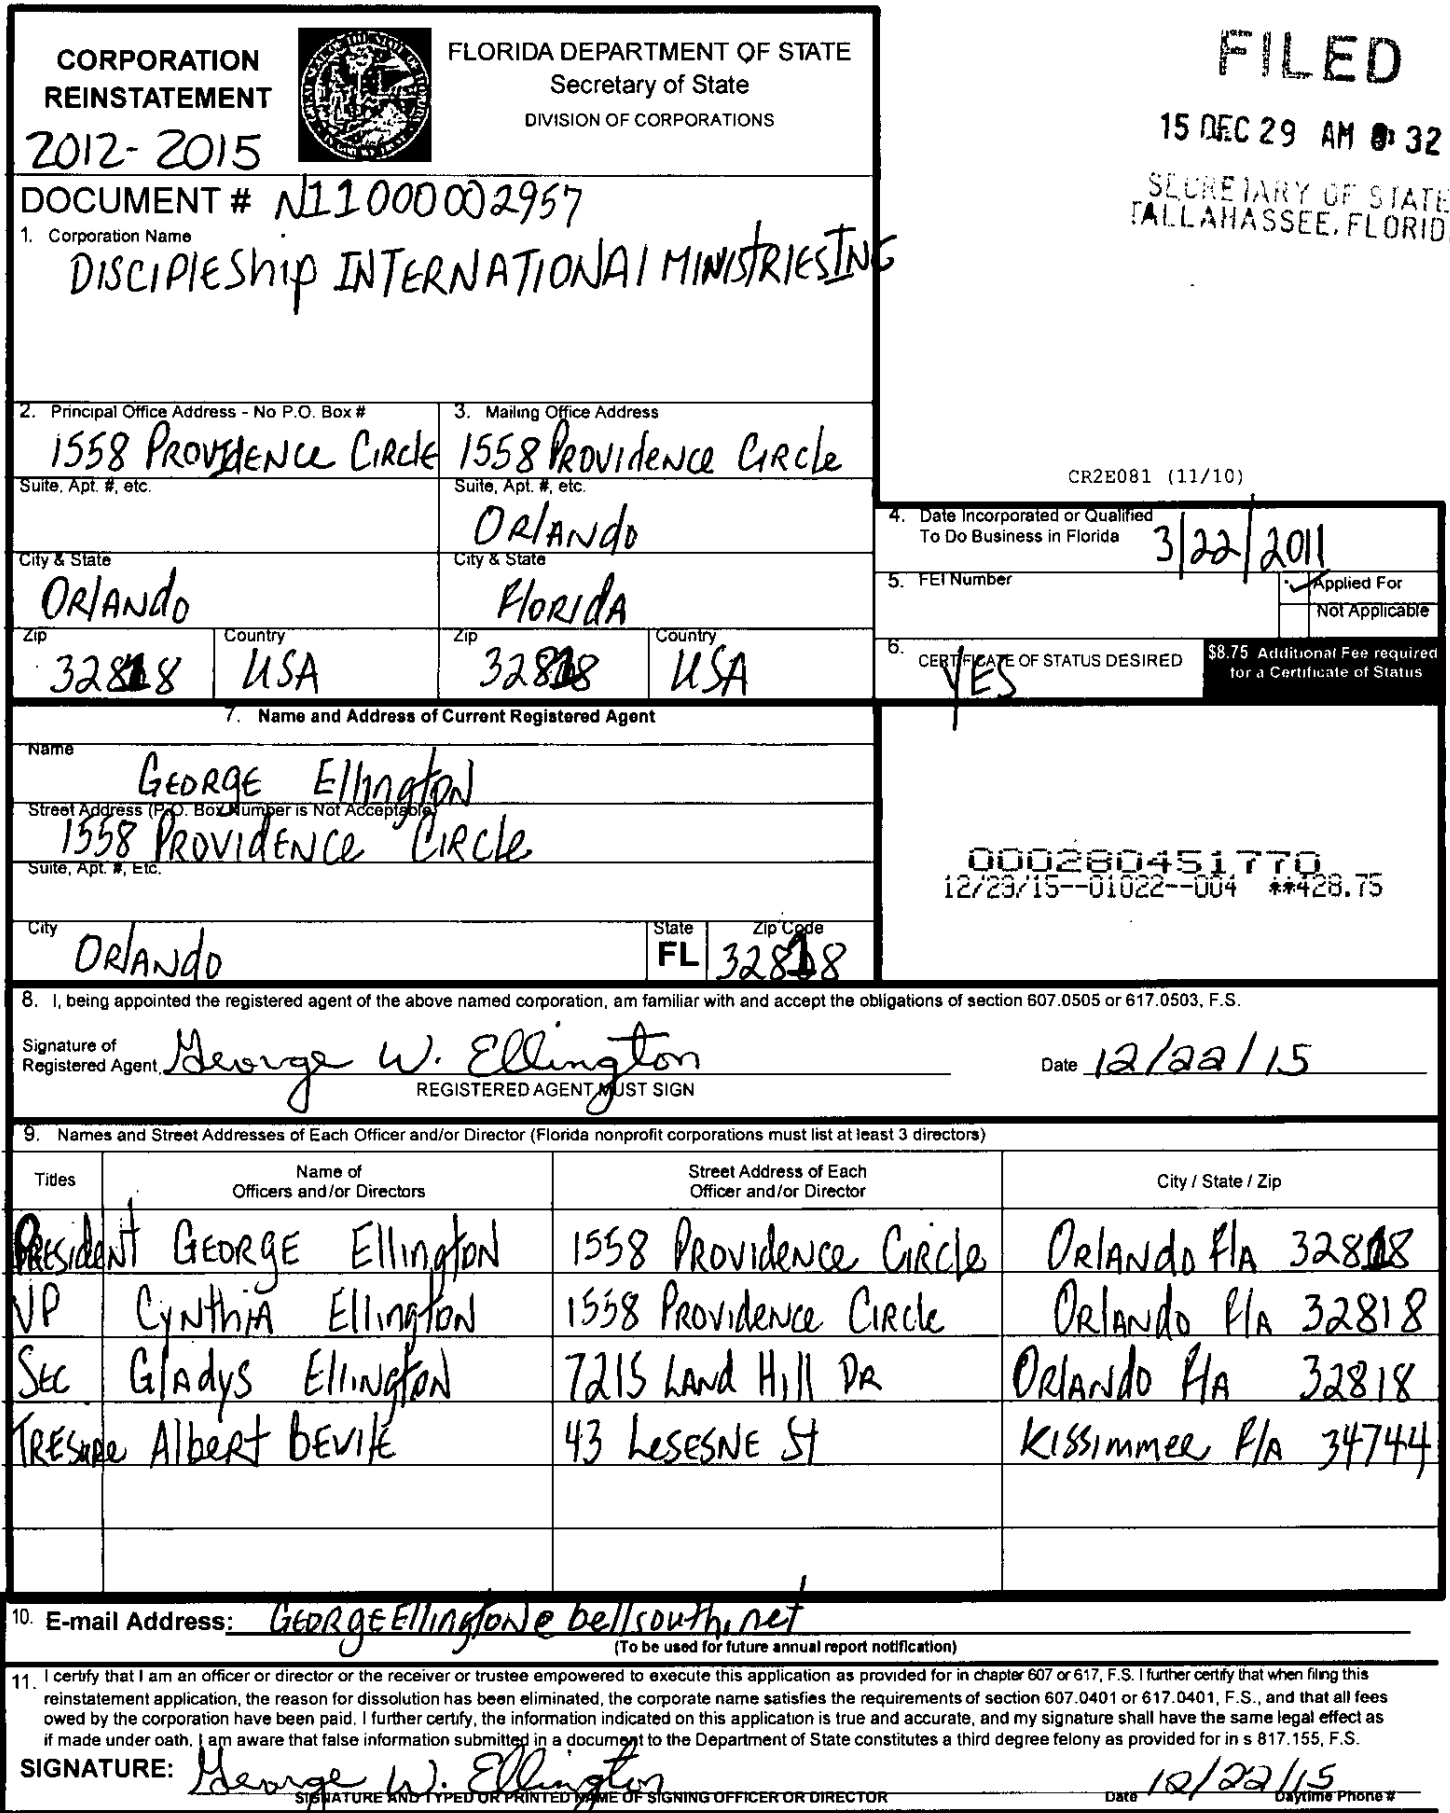 CORPORATION
REINSTATEMENT
2012-2015
FLORIDA DEPARTMENT OF STATE
Secretary of State
DIVISION OF CORPORATIONS
FILED
15 DEC 29 AM 32
SECRETARY OF STATE
TALLAHASSEE, FLORID
DOCUMENT # N11000002957
1. Corporation Name
DISCIPLEShip INTERNATIONAl MINISTRIES INC
2. Principal Office Address - No P.O. Box #
1558 PROVIDENCE CIRClE
Suite, Apt. #, etc.
City & State
ORlANdo
Zip
32818
Country
USA
3. Mailing Office Address
1558 PROVIdeNCe CIRCle
Suite, Apt. #, etc.
ORlANdo
City & State
FlORIdA
Zip
32818
Country
USA
CR2E081 (11/10)
4. Date Incorporated or Qualified
To Do Business in Florida
3/22/2011
5. FEI Number
✓ Applied For
Not Applicable
6. CERTIFICATE OF STATUS DESIRED
YES
$8.75 Additional Fee required
for a Certificate of Status
7. Name and Address of Current Registered Agent
Name
GEORgE EllingtoN
Street Address (P.O. Box Number is Not Acceptable)
1558 PROVIdENCe CIRCle
Suite, Apt. #, Etc.
City
ORlANdo
State
FL
Zip Code
32818
000280451770
12/29/15--01022--004 **428.75
8. I, being appointed the registered agent of the above named corporation, am familiar with and accept the obligations of section 607.0505 or 617.0503, F.S.
Signature of
Registered Agent George W. Ellington
Date 12/22/15
REGISTERED AGENT MUST SIGN
9. Names and Street Addresses of Each Officer and/or Director (Florida nonprofit corporations must list at least 3 directors)
Titles
Name of
Officers and/or Directors
Street Address of Each
Officer and/or Director
City / State / Zip
PRESident GEORgE EllingtoN 1558 PROVIdeNce CIRCle ORlANdo FlA 32818
VP CyNthiA EllingtoN 1558 PROVIdeNce CIRCle ORlANdo FlA 32818
SEC GlAdyS EllINgtoN 7215 LANd Hill DR ORlANdo FlA 32818
TRESURE AlbeRt BEVIlE 43 LeSESNE St KISSImmee FlA 34744
10. E-mail Address: GEORgEEllingtoN@bellsouth.net
(To be used for future annual report notification)
11. I certify that I am an officer or director or the receiver or trustee empowered to execute this application as provided for in chapter 607 or 617, F.S. I further certify that when filing this
reinstatement application, the reason for dissolution has been eliminated, the corporate name satisfies the requirements of section 607.0401 or 617.0401, F.S., and that all fees
owed by the corporation have been paid. I further certify, the information indicated on this application is true and accurate, and my signature shall have the same legal effect as
if made under oath. I am aware that false information submitted in a document to the Department of State constitutes a third degree felony as provided for in s 817.155, F.S.
SIGNATURE: George W. Ellington 12/22/15
SIGNATURE AND TYPED OR PRINTED NAME OF SIGNING OFFICER OR DIRECTOR
Date
Daytime Phone #